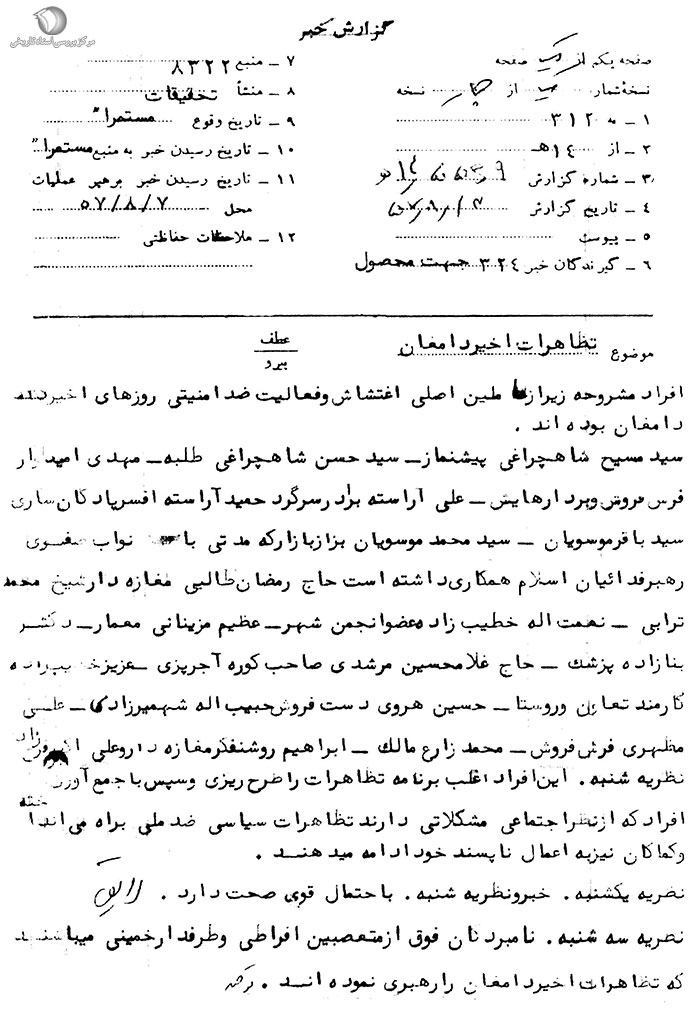 مرکز بررسی اسناد تاریخی
گزارش خبر
صفحه یکم از یک صفحه
نسخه شماره از چهار نسخه
۱ ـ به ۳۱۲
۲ ـ از ۱۴هـ
۳ـ شماره گزارش
۴ ـ تاریخ گزارش
۵ ـ پیوست
۶ ـ گیرندگان خبر ۳۲۴ جهت محصول
۷ ـ منبع ۸۳۲۲
۸ ـ منشأ تحقیقات
۹ ـ تاریخ وقوع مستمرا"
۱۰ ـ تاریخ رسیدن خبر به منبع مستمرا"
۱۱ ـ تاریخ رسیدن خبر برهبر عملیات
محل ۵۷/۸/۷
۱۲ ـ ملاحظات حفاظتی
موضوع تظاهرات اخیر دامغان
عطف
پیرو
افراد مشروحه زیر از عاملین اصلی اغتشاش و فعالیت ضد امنیتی روزهای اخیر در
دامغان بوده اند .
سید مسیح شاهچراغی پیشنماز ـ سید حسن شاهچراغی طلبه ـ مهدی امیدوار
فرش فروش و برادرهایش ـ علی آراسته برادر سرگرد حمید آراسته افسر پادگان ساری
سید باقر موسویان ـ سید محمد موسویان بزاز بازار که مدتی با نواب صفوی
رهبر فدائیان اسلام همکاری داشته است حاج رمضان طالبی مغازه دار شیخ محمد
ترابی ـ نعمت اله خطیب زاده عضو انجمن شهر ـ عظیم مزینانی معمار ـ دکتر
بنازاده پزشک ـ حاج غلامحسین مرشدی صاحب کوره آجرپزی ـ عزیز خطیب زاده
کارمند تعاون و روستا ـ حسین هروی دست فروش حبیب اله شهمیرزادی ـ علی
مظهری فرش فروش ـ محمد زارع مالک ـ ابراهیم روشنفکر مغازه دار و علی
نظریه شنبه . این افراد اغلب برنامه تظاهرات را طرح ریزی و سپس با جمع آوری
افراد که از نظر اجتماعی مشکلاتی دارند تظاهرات سیاسی ضد ملی براه می اندا خته
و کماکان نیز به اعمال ناپسند خود ادامه میدهند .
نظریه یکشنبه . خبر و نظریه شنبه . با احتمال قوی صحت دارد .
نظریه سه شنبه . نامبردگان فوق از متعصبین افراطی و طرفدار خمینی میباشند
که تظاهرات اخیر دامغان را رهبری نموده اند .